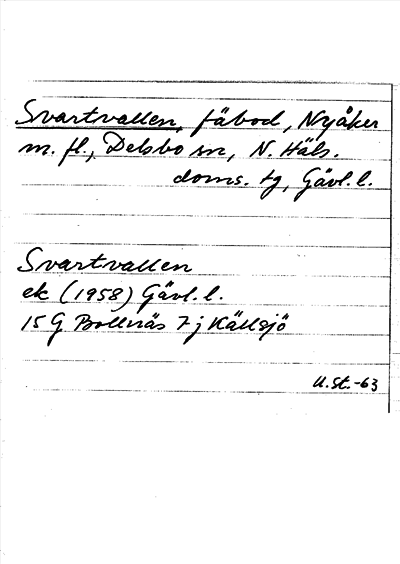 Svartvallen, fäbod, Nyåker
m. fl., Delsbo sn, N. Häls.
doms. tg, Gävl. l.
Svartvallen
ek (1958) Gävl. l.
15 G Bollnäs 7 j Källsjö
U. St. -63